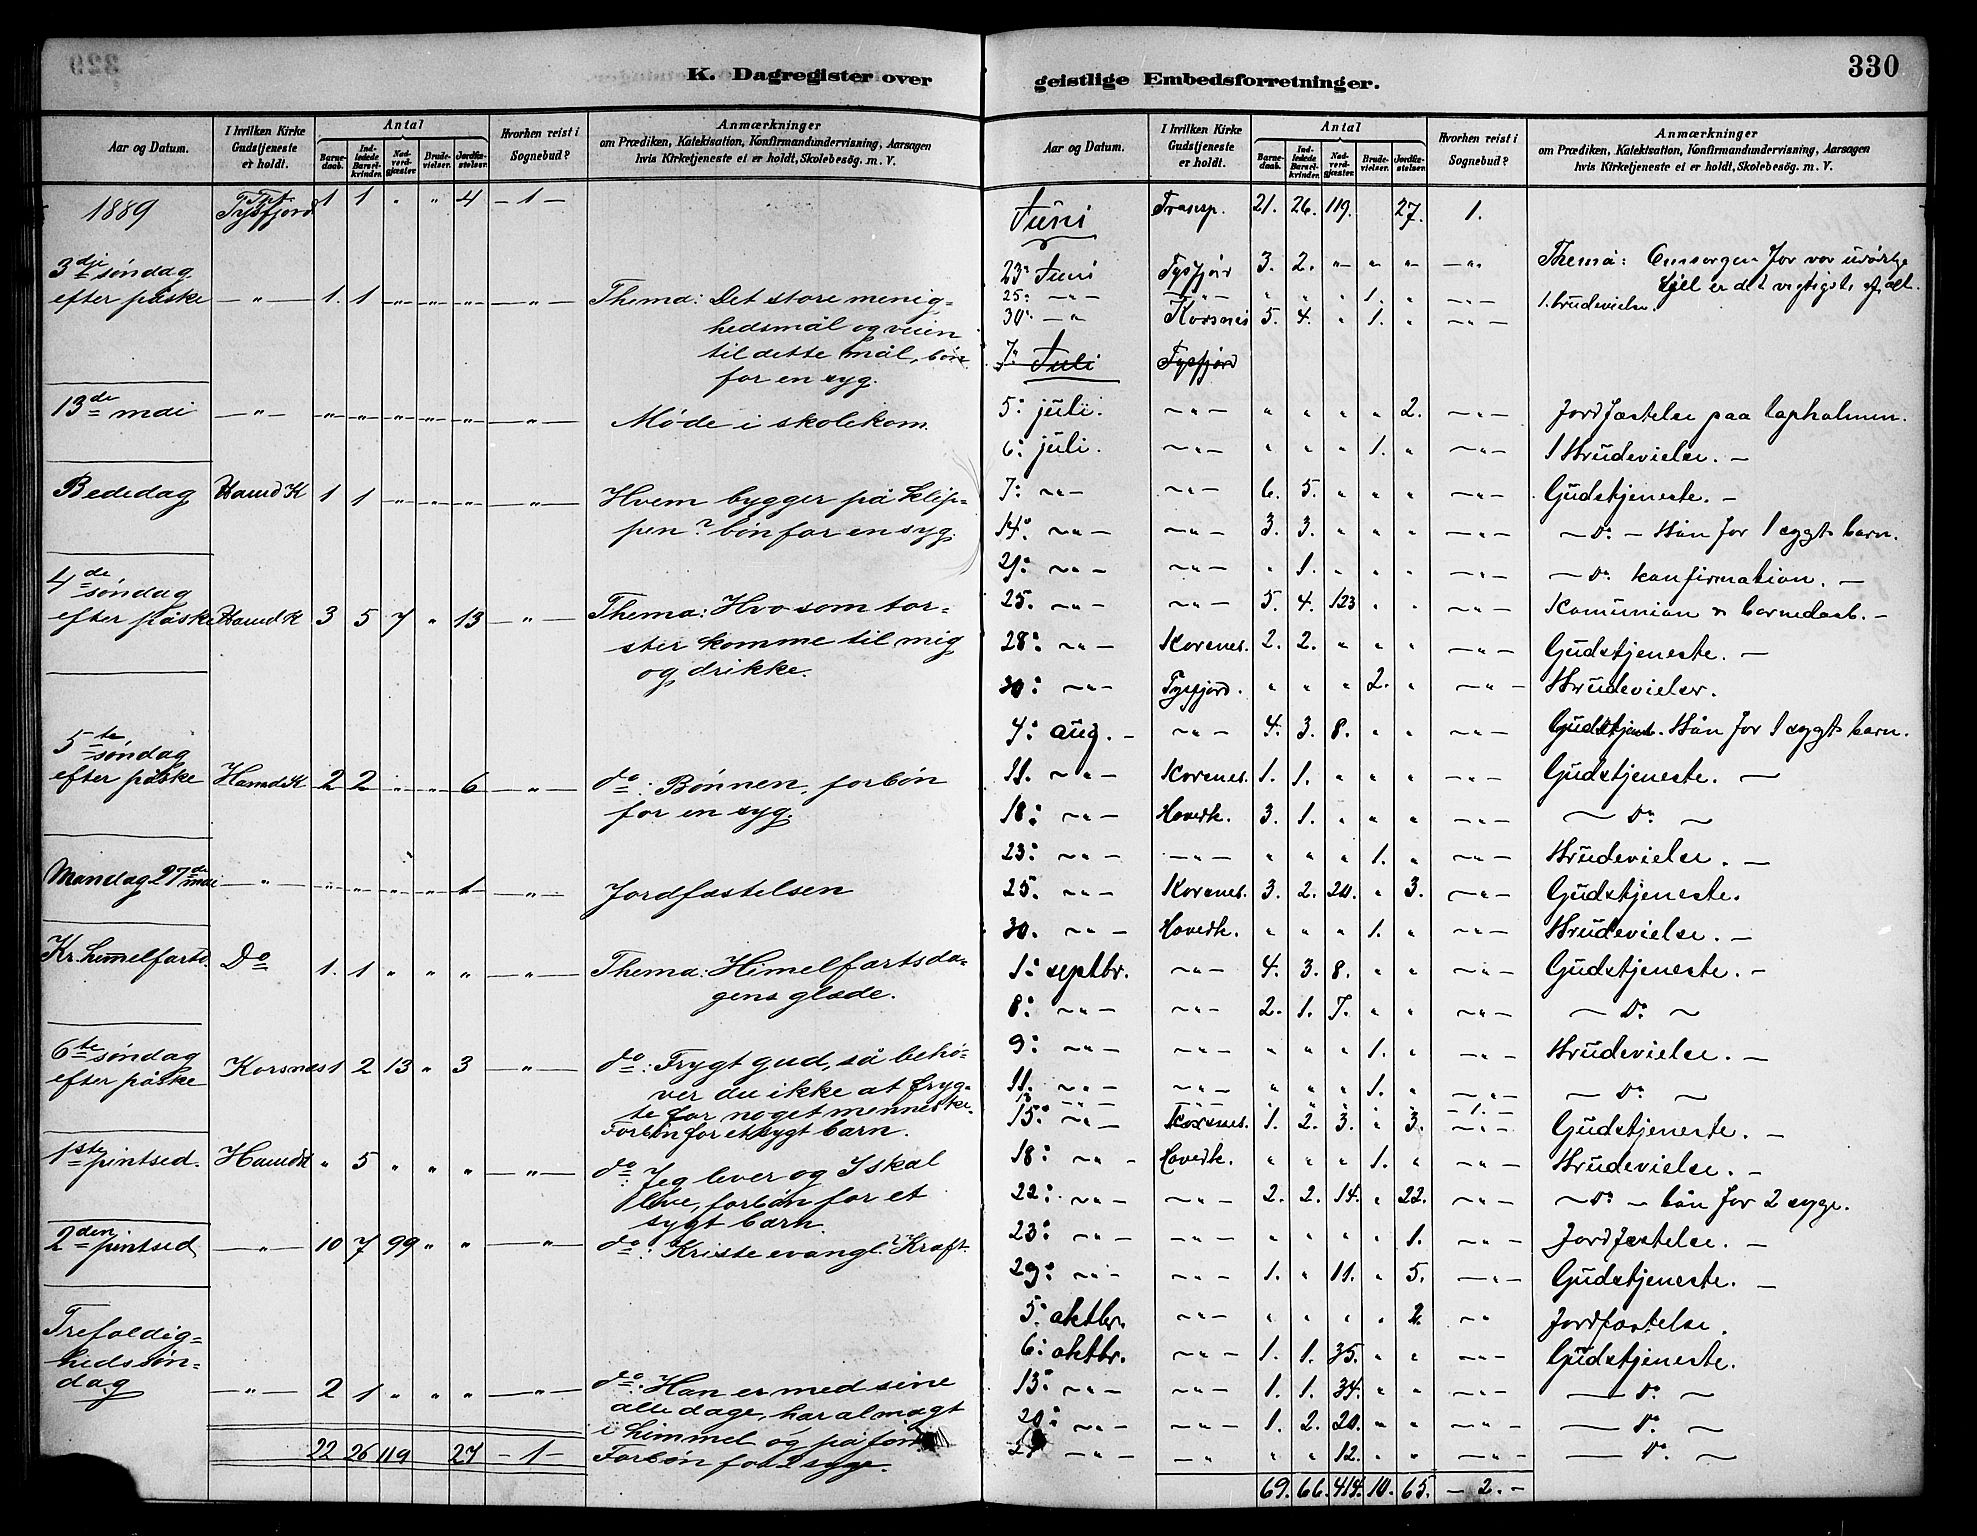 K. Dagregister over
Aar og Datum. I hvilken Kirke Gudstjeneste er holdt. Antal Barnedaab. Indledede Barselkvinder. Nadverdgjæster. Brudevielser. Jordfæstelser. Hvorhen reist i Sognebud? Anmærkninger om Prædiken, Katekisation, Konfirmandundervisning, Aarsagen hvis Kirketjeneste ei er holdt, Skolebesög. m. V.
1889 Tysfjord 1 1 " " 4 - 1 -
3dje søndag
efter påske — " — 1. 1 " " " — " — Thema: Det store menig-
hedsmål og veien
til dette mål, bøn
for en syg.
13de mai — " — " " " " " — " — Møde i skolekom.
Bededag Hamd K 1 1 " " " — " — Hvem bygger på klip-
pen? bøn for en syg.
4de søndag
efter påske Hamd K 3 5 7 " 13 — " — Thema: Hvo som tør-
ster komme til mig
og drikke.
5te søndag
efter påske Hamd K 2 2 " " 6 — " — do: Bønnen, forbøn
for en syg.
Mandag 27de mai — " — " " " " 1 — " — Jordfæstelsen
Kr. himelfartsd. Do 1. 1 " " " — " — Thema: Himelfartsda-
gens glæde.
6te søndag
efter påske Korsnæs 1 2 13 " 3 — " — do: Frygt gud, så behø-
ver du ikke at fryg-
te for noget menneske.
Forbøn for et sygt barn.
1ste pintsed. Hamd K " 5 " " " — " — do: Jeg lever og I skal
leve, forbøn for et
sygt barn
2den pintsed — " — 10 7 99 " " — " — do: Kriste evangl. Kraft.
Trefoldig-
hedssøn-
dag — " — 2 1 " " " — " — do: Han er med sine
alle dage, har al magt
i himmel og på jord
22 26 119 27 - 1 - Forbøn for 2 syge.
geistlige Embedsforretninger. 330
Aar og Datum. I hvilken Kirke Gudstjeneste er holdt. Antal Barnedaab. Indledede Barselkvinder. Nadverdgjæster. Brudevielser. Jordfæstelser. Hvorhen reist i Sognebud? Anmærkninger om Prædiken, Katekisation, Konfirmandundervisning, Aarsagen hvis Kirketjeneste ei er holdt, Skolebesög. m. V.
Juni Transp. 21. 26. 119. 27. 1.
23: Juni Tysfjord 3. 2. " " " — " Thema: Omsorgen for vor udødelige
Sjæl er det vigtigste af alt.
25: — " — — " — " " " 1. " — " — 1. brudevielse.
30: — " Korsnæs 5. 4. " 1. " — " —
7: Juli Tysfjord
5: juli. — " — " " " " 2. — " — Jordfæstelse paa lapholmen.
6: juli. — " — " " " 1. " — " — 1 Brudevielse. —
7: — " — — " — 6. 5. " " " — " — Gudstjeneste. —
14: — " — — " — 3. 3. " " " — " — — Do. — Bøn for 1 sygt barn.
21: — " — — " — " 1. " " " — " — — Do. konfirmation. —
25. — " — — " — 5. 4. 123 " " — " — Komunion & barnedaab. —
28: — " — Korsnes. 2. 2. " " " — " — Gudstjeneste. —
30: — " — Tysfjord. " " " 2. " — " — Brudevielser.
4: aug. — — " — 4. 3. 8. " " — " — Gudstjenst. Bøn for 1 sygt barn.
11. — " — Korsnes. 1. 1. " " " — " — Gudstjeneste. —
18: — " — Hovedk. 3. 1. " " " — " — — Do —
23: — " — — " — " " " 1. " — " — Brudevielse. —
25. — " — Korsnes. 3. 2. 20. " 3. — " — Gudstjeneste.
30. — " — Hovedk. " " " 1. " — " — Brudevielse. —
1: septbr. — " — 4. 3. 8. " " — " — Gudstjeneste. —
8: — " — — " — 2. 1. 7. " " — " — — Do —
9: — " — — " — " " " 1. " — " — Brudevielse. —
11. — " — — " — " " " 1. " — " — — Do —
13 — " — — " — " " " " " — 1. —
15: — " — Korsnes. 1. 2. 3. " 3. — " — Gudstjeneste. —
18: — " — Hovedk. " " " 1. " — " — Brudevielse. —
22: — " — — " — 2. 2. 14. " 22. — " — — Do — bøn for 2 syge.
23: — " — — " — " " " " 1. — " — Jordfæstelse. —
29: — " — — " — 1. " 11. " 5. — " — Gudstjeneste. —
5: oktbr. — " — " " " " 2. — " Jordfæstelse.
6: oktbr. — " — 1. 1. 35. " " — " — Gudstjeneste.
13: — " — — " — 1. 1. 34. " " — " — — Do —
20: — " — — " — 1. 2. 20. " " — " — — Do —
— " — — " " " 12. " " — " — — Do —
69. 66. 414. 10. 65. — 2. —